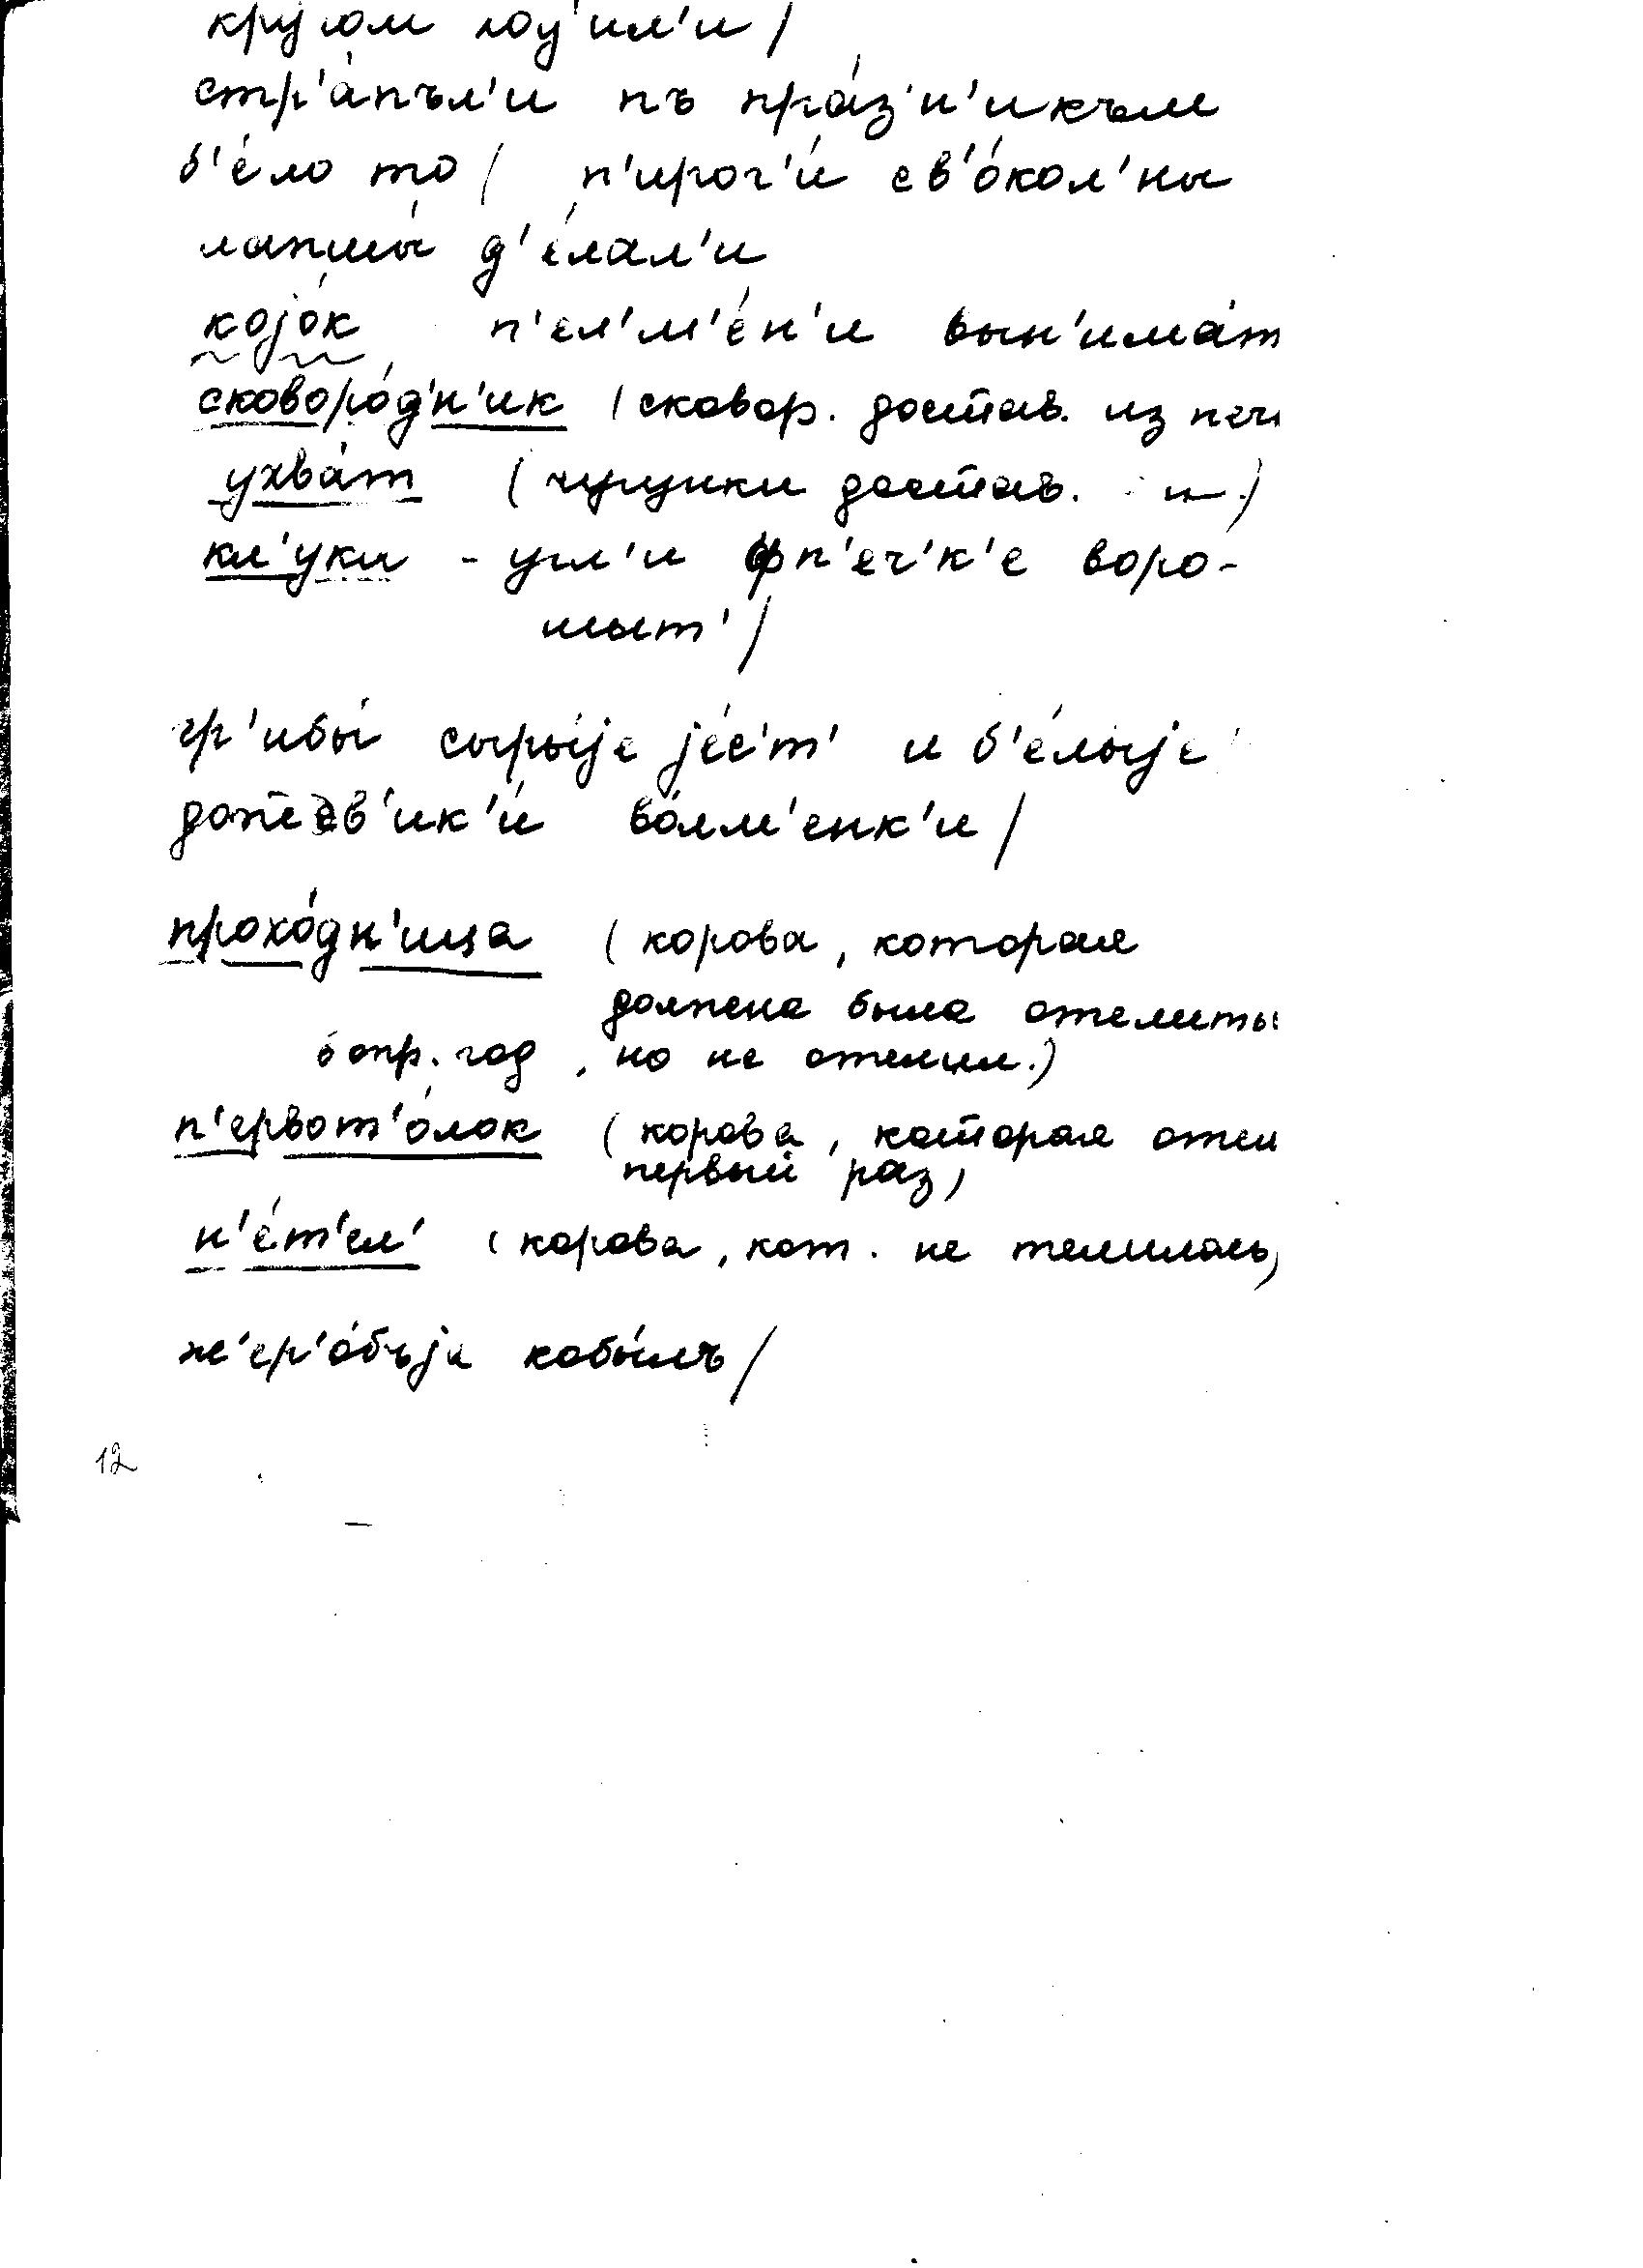 кругом ход'ил'и /
стр'а́пъл'и пъ пра́з'н'икъм
б'е́ло то / п'ирог'и́ св'о́кол'ны
лапшы́ д'е́лал'и
којо́к п'ел'м'е́н'и вын'има́т
сковоро́д'н'ик (сковор. достав. из печи
ухва́т (чугунки достав. –"–)
кл'уки – угл'и ф п'еч'к'е воро-
шыт' /
гр'ибы́ сыры́је је́с'т' и б'е́лыје
дожев'ик'и́ во́лм'енк'и /
прохо́дн'ица (корова, которая
должна была отелиты
в опр. год, но не отелил.)
п'ервот'о́лок (корова, которая отел
первый раз)
н'е́т'ел' (корова, кот. не телилась)
ж'ер'о́бъја кобы́лъ /
12